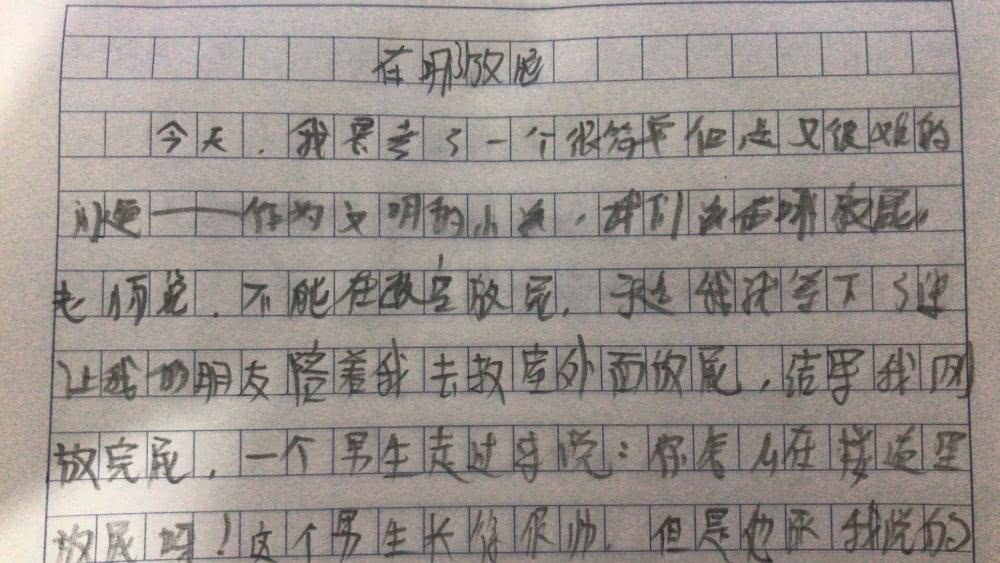 在哪放屁
今天，我思考了一个很简单但是又很难的
问题——作为文明的小孩，我们该在哪放屁，
老师说，不能在教室放屁，于是我我等下了课
让我的朋友陪着我去教室外面放屁，结果我刚
放完屁，一个男生走过来说：你怎么在楼道里
放屁呀！这个男生长得很帅，但是他跟我说的